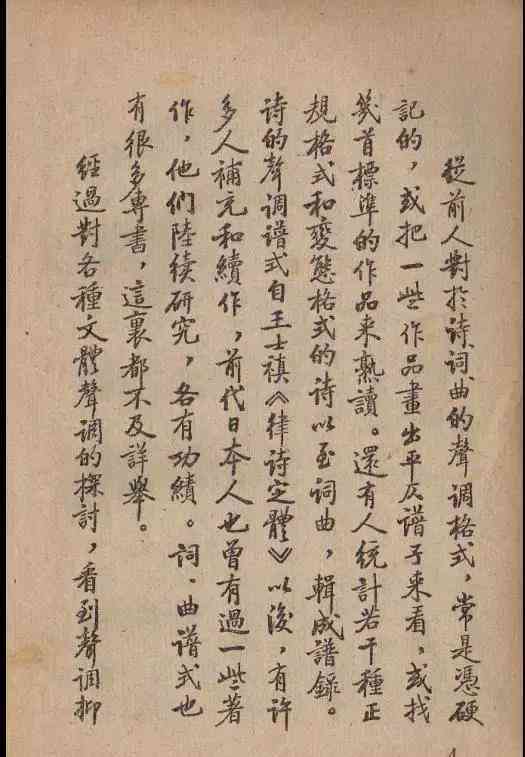 從前人對於诗詞曲的聲调格式，常是憑硬
記的，或把一些作品畫出平仄谱子来看，或找
幾首標準的作品来熟讀。還有人统計若干種正
規格式和變態格式的诗以至词曲，輯成譜錄。
诗的聲调谱式自王士禛《律诗定體》以後，有许
多人補充和續作，前代日本人也曾有過一些著
作，他們陸续研究，各有功績。词、曲谱式也
有很多專書，這裏都不及詳舉。
經過對各種文體聲調的探討，看到聲调抑